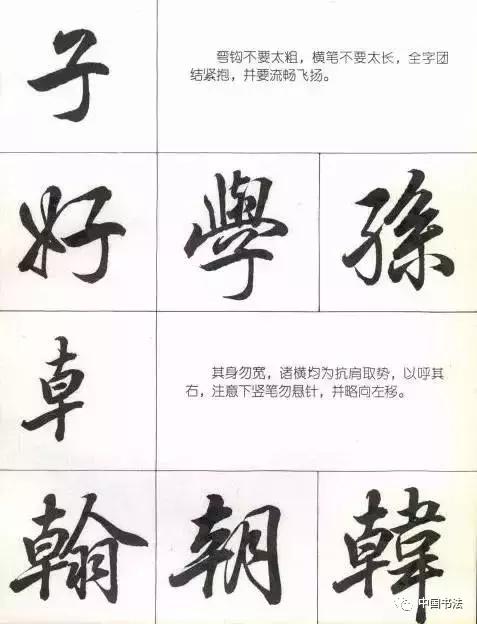 子
弯钩不要太粗，横笔不要太长，全字团
结紧抱，并要流畅飞扬。
好 學 孫
卓
其身勿宽，诸横均为抗肩取势，以呼其
右，注意下竖笔勿悬针，并略向左移。
翰 朝 韓
中国书法